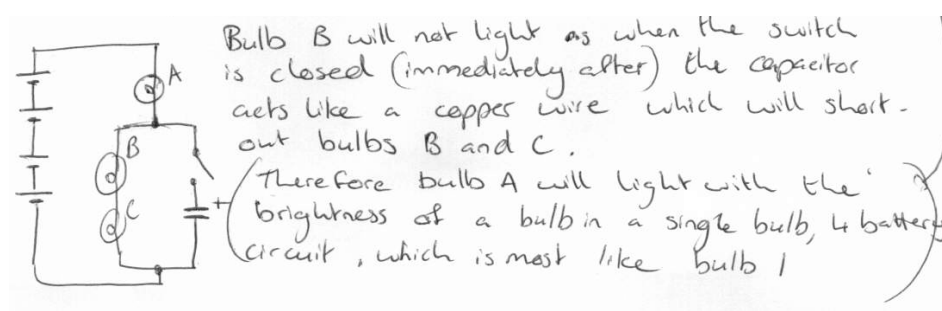 Bulb B will not light as when the switch
A
is closed (immediately after) the capacitor
acts like a copper wire which will short-
B
out bulbs B and C.
(Therefore bulb A will light with the
C
+
brightness of a bulb in a single bulb, 4 battery
circuit, which is most like bulb 1)